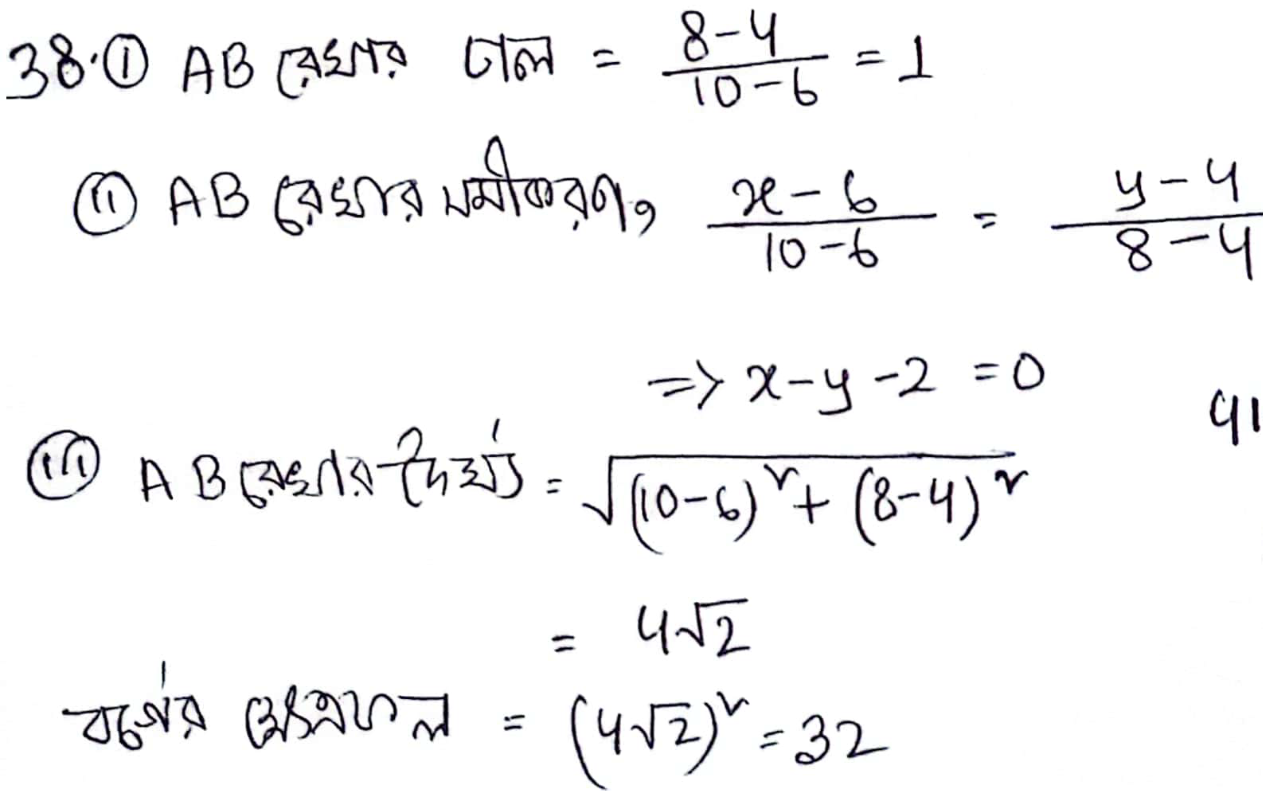 38.① AB রেখার ঢাল = \frac{8-4}{10-6} = 1
ⅱ AB রেখার সমীকরণ, \frac{x-6}{10-6} = \frac{y-4}{8-4}
=> x-y-2 = 0
41
ⅲ AB রেখার দৈর্ঘ্য = \sqrt{(10-6)^২ + (8-4)^২}
= 4√2
বর্গের ক্ষেত্রফল = (4√2)^২ = 32